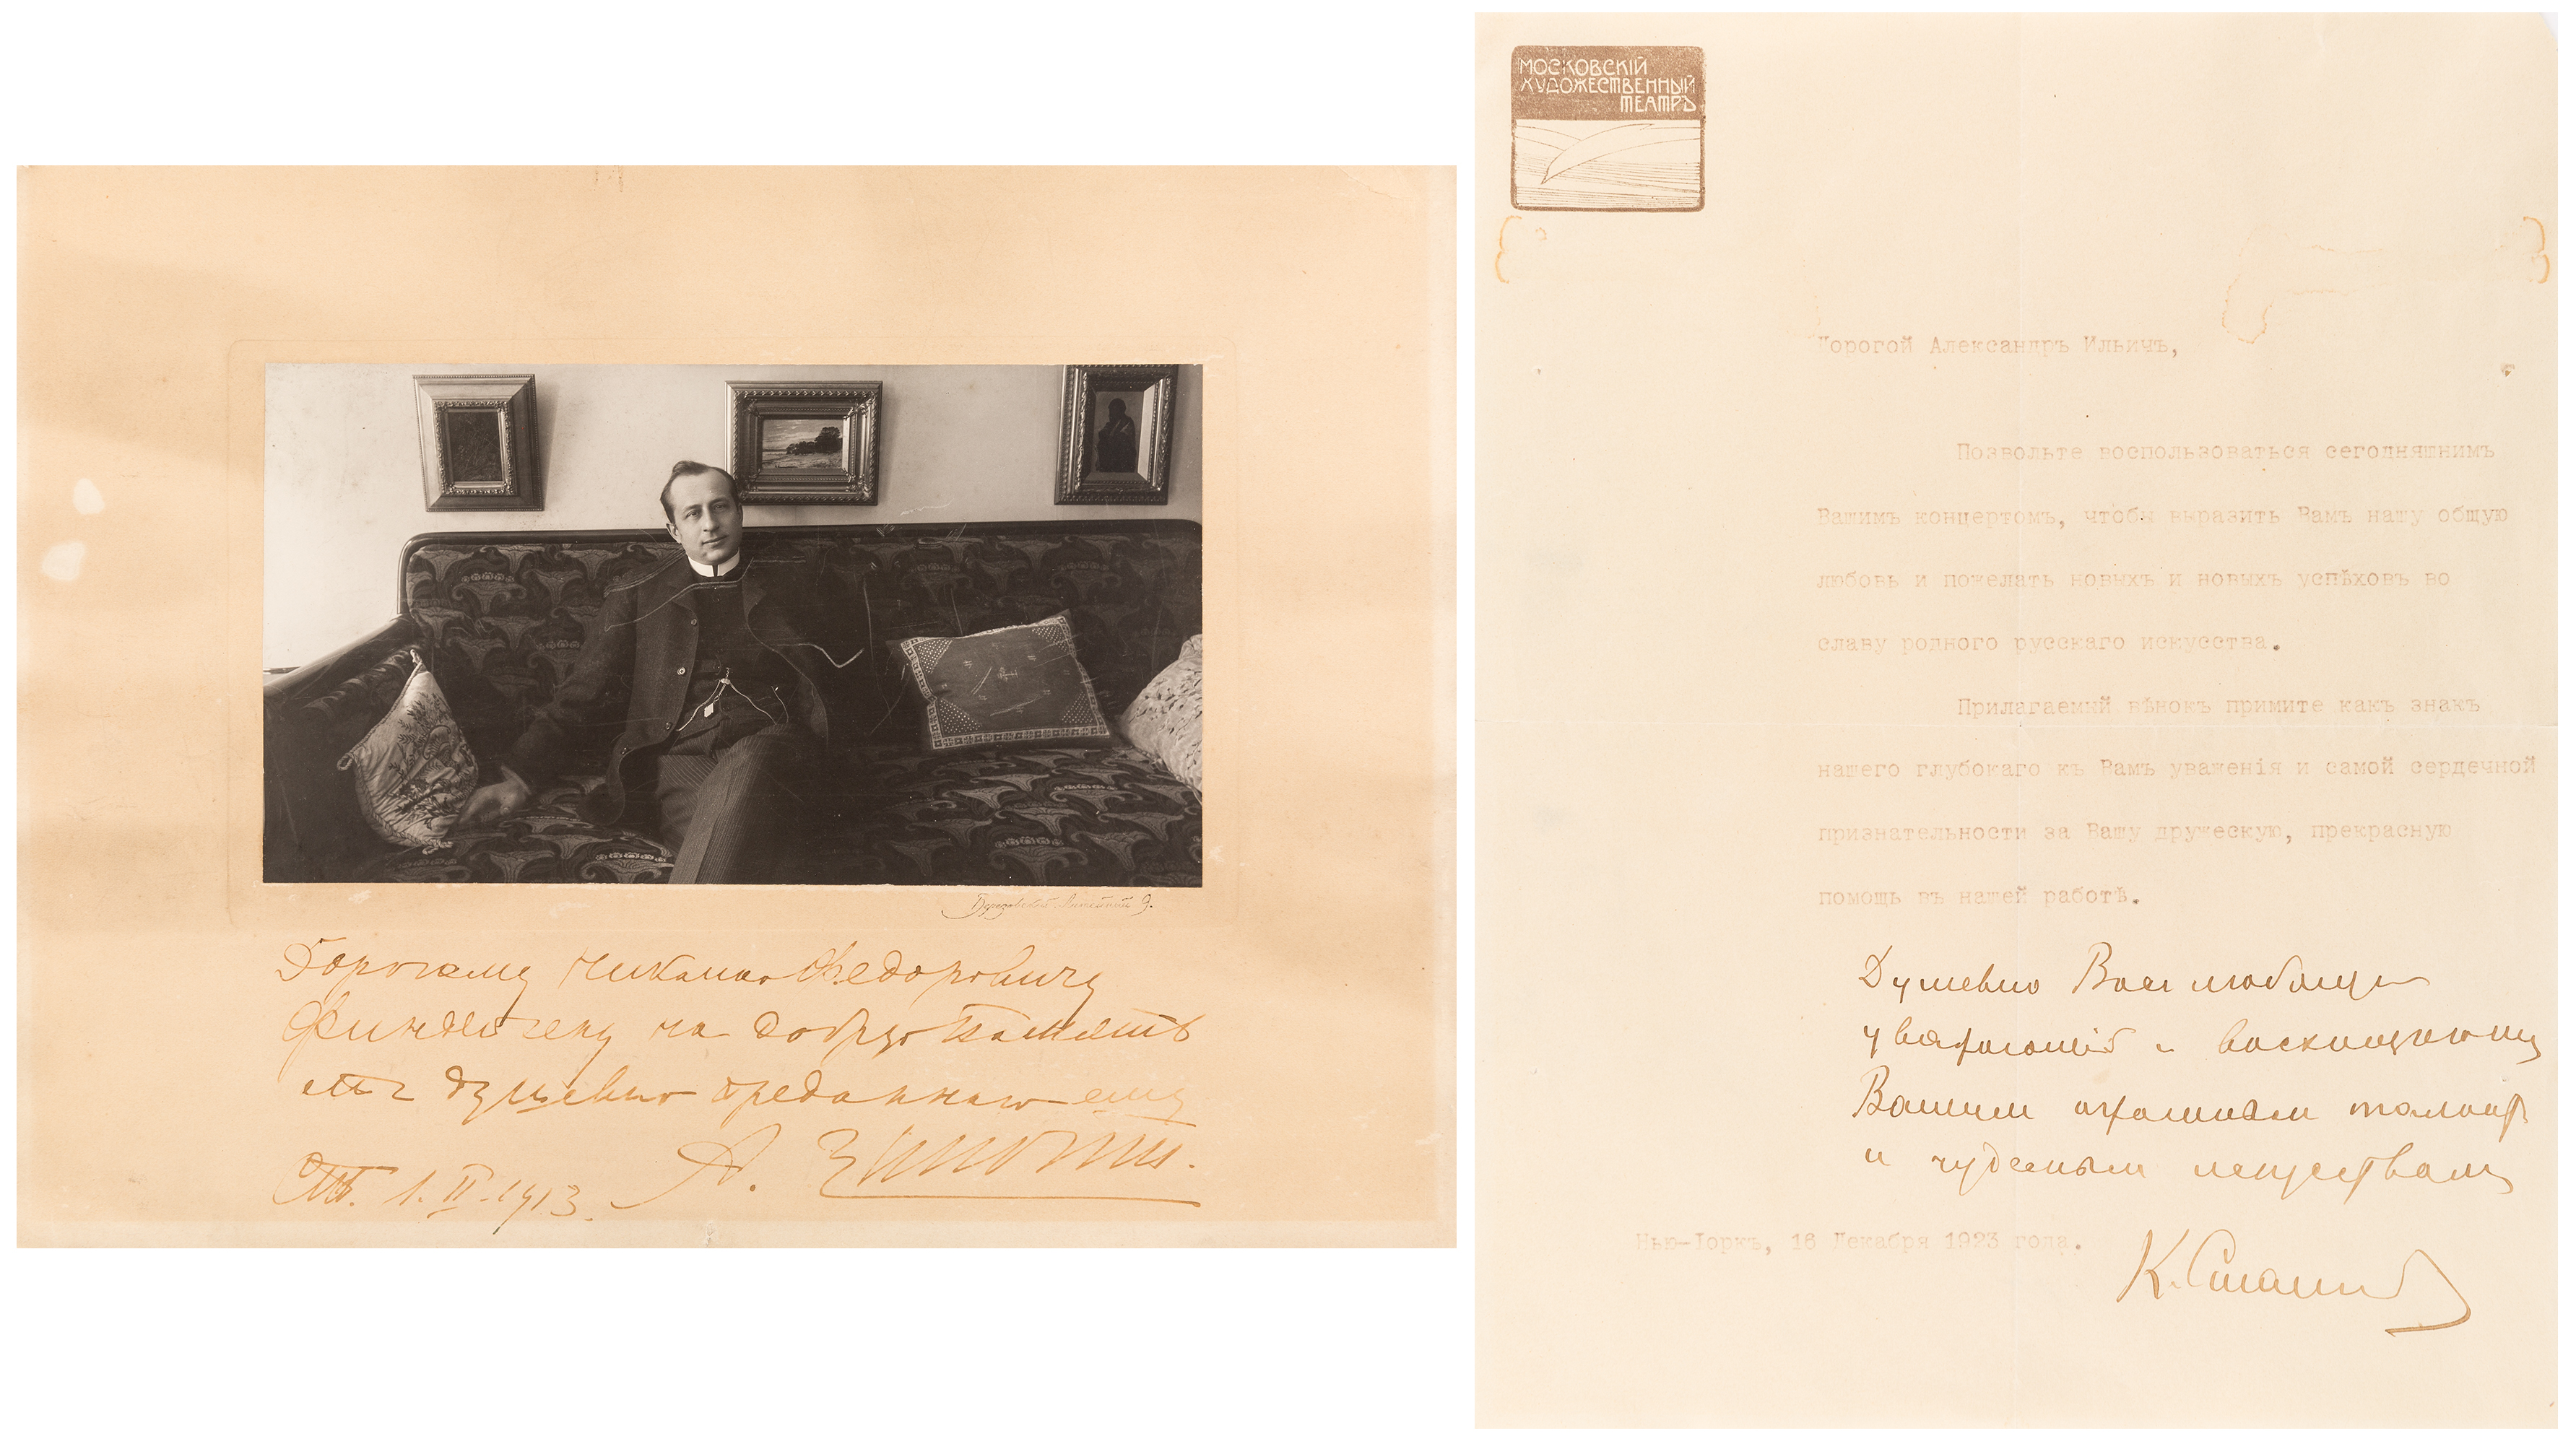 Дорогому Николаю Федоровичу
Финдейзену на добрую память
отъ душевно преданнаго ему
А. Зилоти.
СПб. 1. II. 1913.
МОСКОВСКІЙ
ХУДОЖЕСТВЕННЫЙ
ТЕАТРЪ
Дорогой Александръ Ильичъ,
Позвольте воспользоваться сегодняшнимъ
Вашимъ концертомъ, чтобы выразить Вамъ нашу общую
любовь и пожелать новыхъ и новыхъ успѣховъ во
славу родного русскаго искусства.
Прилагаемый вѣнокъ примите какъ знакъ
нашего глубокаго къ Вамъ уваженія и самой сердечной
признательности за Вашу дружескую, прекрасную
помощь въ нашей работѣ.
Душевно Васъ любящій
уважающій и восхищающ
Вашимъ огромнымъ талант
и чудеснымъ искусствомъ
Нью-Іоркъ, 16 Декабря 1923 года.
К. Станис